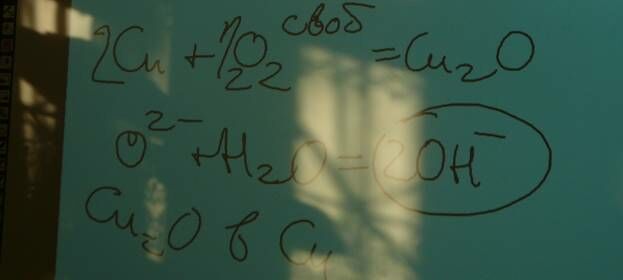 2Cu + 1/2 O2 своб = Cu2O
O2- + H2O = 2OH-
Cu2O в Cu